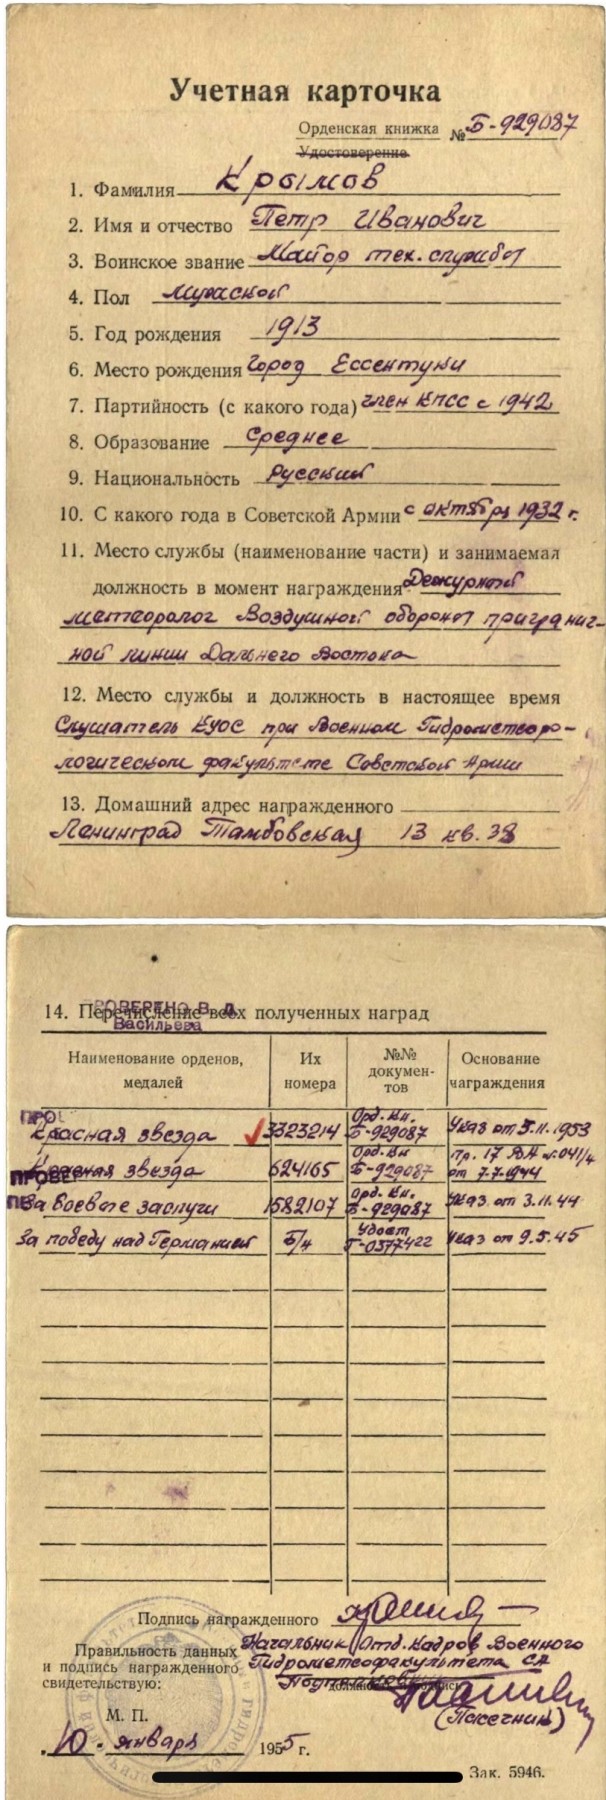 Учетная карточка
Орденская книжка № Б-929087
Удостоверение
1. Фамилия Крымов
2. Имя и отчество Петр Иванович
3. Воинское звание Майор тех. службы
4. Пол мужской
5. Год рождения 1913
6. Место рождения город Ессентуки
7. Партийность (с какого года) член КПСС с 1942
8. Образование среднее
9. Национальность русский
10. С какого года в Советской Армии с октября 1932 г.
11. Место службы (наименование части) и занимаемая
должность в момент награждения Дежурный
метеоролог Воздушной обороны погранич-
ной линии Дальнего Востока
12. Место службы и должность в настоящее время
Слушатель КУОС при Военном Гидрометеоро-
логическом факультете Советской Армии
13. Домашний адрес награжденного
Ленинград Тамбовская 13 кв. 38
ПРОВЕРЕНО В. Д.
14. Перечисление всех полученных наград
Васильева
Наименование орденов, медалей Их номера №№ документов Основание награждения
ПРО
Красная звезда 3323214 Орд. кн. Б-929087 Указ от 5.11.1953
Красная звезда 624165 Орд. кн Б-929087 пр. 17 ВА №041/4 от 7.7.1944
ПРОВЕР
За боевые заслуги 1582107 Орд. кн. Б-929087 Указ от 3.11.44
За победу над Германией б/н Удост Г-0377422 Указ от 9.5.45
Подпись награжденного
Правильность данных
и подпись награжденного
свидетельствую:
Начальник Отд. Кадров Военного
Гидрометеофакультета СА
Подполковник
(Пасечник)
М. П.
10 января 1955 г.
Зак. 5946.